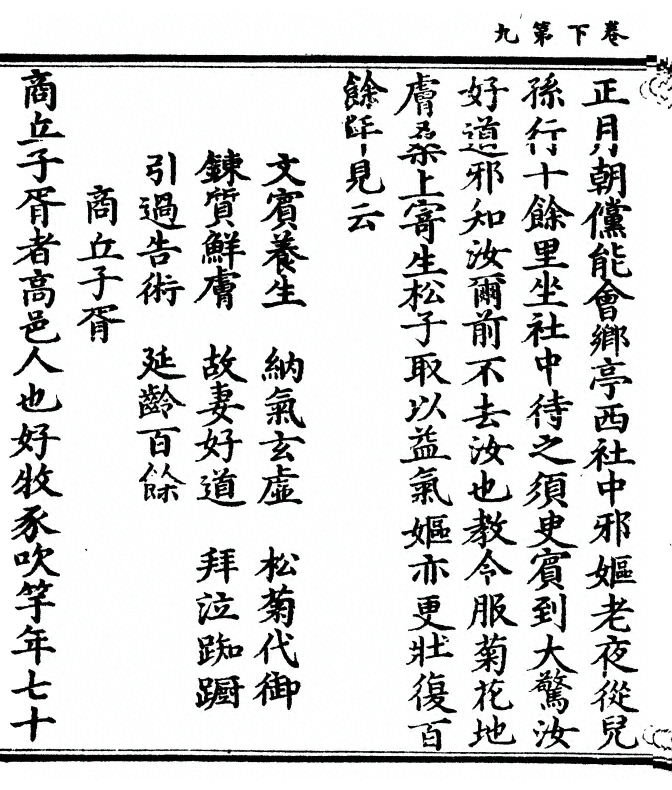 卷下第九
正月朝儻能會鄉亭西社中邪嫗老夜從兒
孫行十餘里坐社中待之須臾賓到大驚汝
好道邪知汝爾前不去汝也教令服菊花地
膚桑上寄生松子取以益氣嫗亦更壯復百
餘年見云
文賓養生 納氣玄虛 松菊代御
鍊質鮮膚 故妻好道 拜泣踟蹰
引過告術 延齡百餘
商丘子胥
商丘子胥者高邑人也好牧豕吹竽年七十